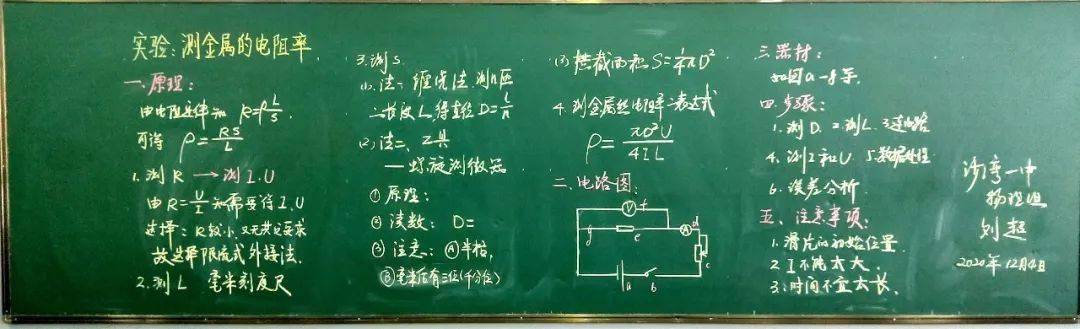 实验:测金属的电阻率
一.原理:
由电阻定律知 R=ρL/S.
可得 ρ=RS/L
1.测R → 测I.U
由R=U/I知需要得I.U
选择:R较小,又无其它要求
故选择限流式外接法.
2.测L 毫米刻度尺
3.测S
(1).法一、缠绕法.测n匝
二长度L,得直径D=L/n
(2)法二、工具
—螺旋测微器
① 原理:
② 读数:D=
③ 注意:Ⓐ半格,
Ⓑ毫米后有三位(千分位)
(3)横截面积S=1/4πD²
4.测金属丝电阻率之表达式
ρ=πD²U/4IL
二.电路图:
V f
g e A d
c
a b
三.器材:
如图a-g等.
四.步骤:
1.测D. 2.测L. 3.连电路
4.测I和U 5.数据处理
6.误差分析
五、注意事项:
1.滑片的初始位置.
2.I不能太大.
3.时间不宜太长.
沙湾一中
物理组
刘超
2020年12月4日